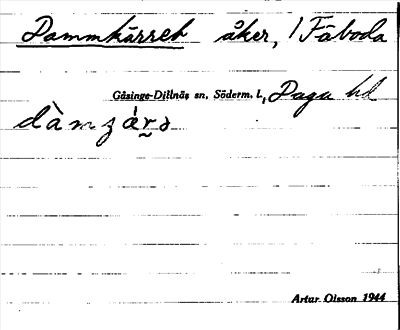 Dammkärret åker, 1 Fäboda
Gåsinge-Dillnäs sn, Söderm. l., Daga hd
Artur Olsson 1944